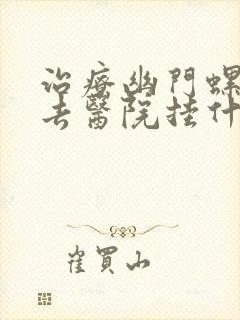 治療幽門螺
去醫院挂什
崔買山